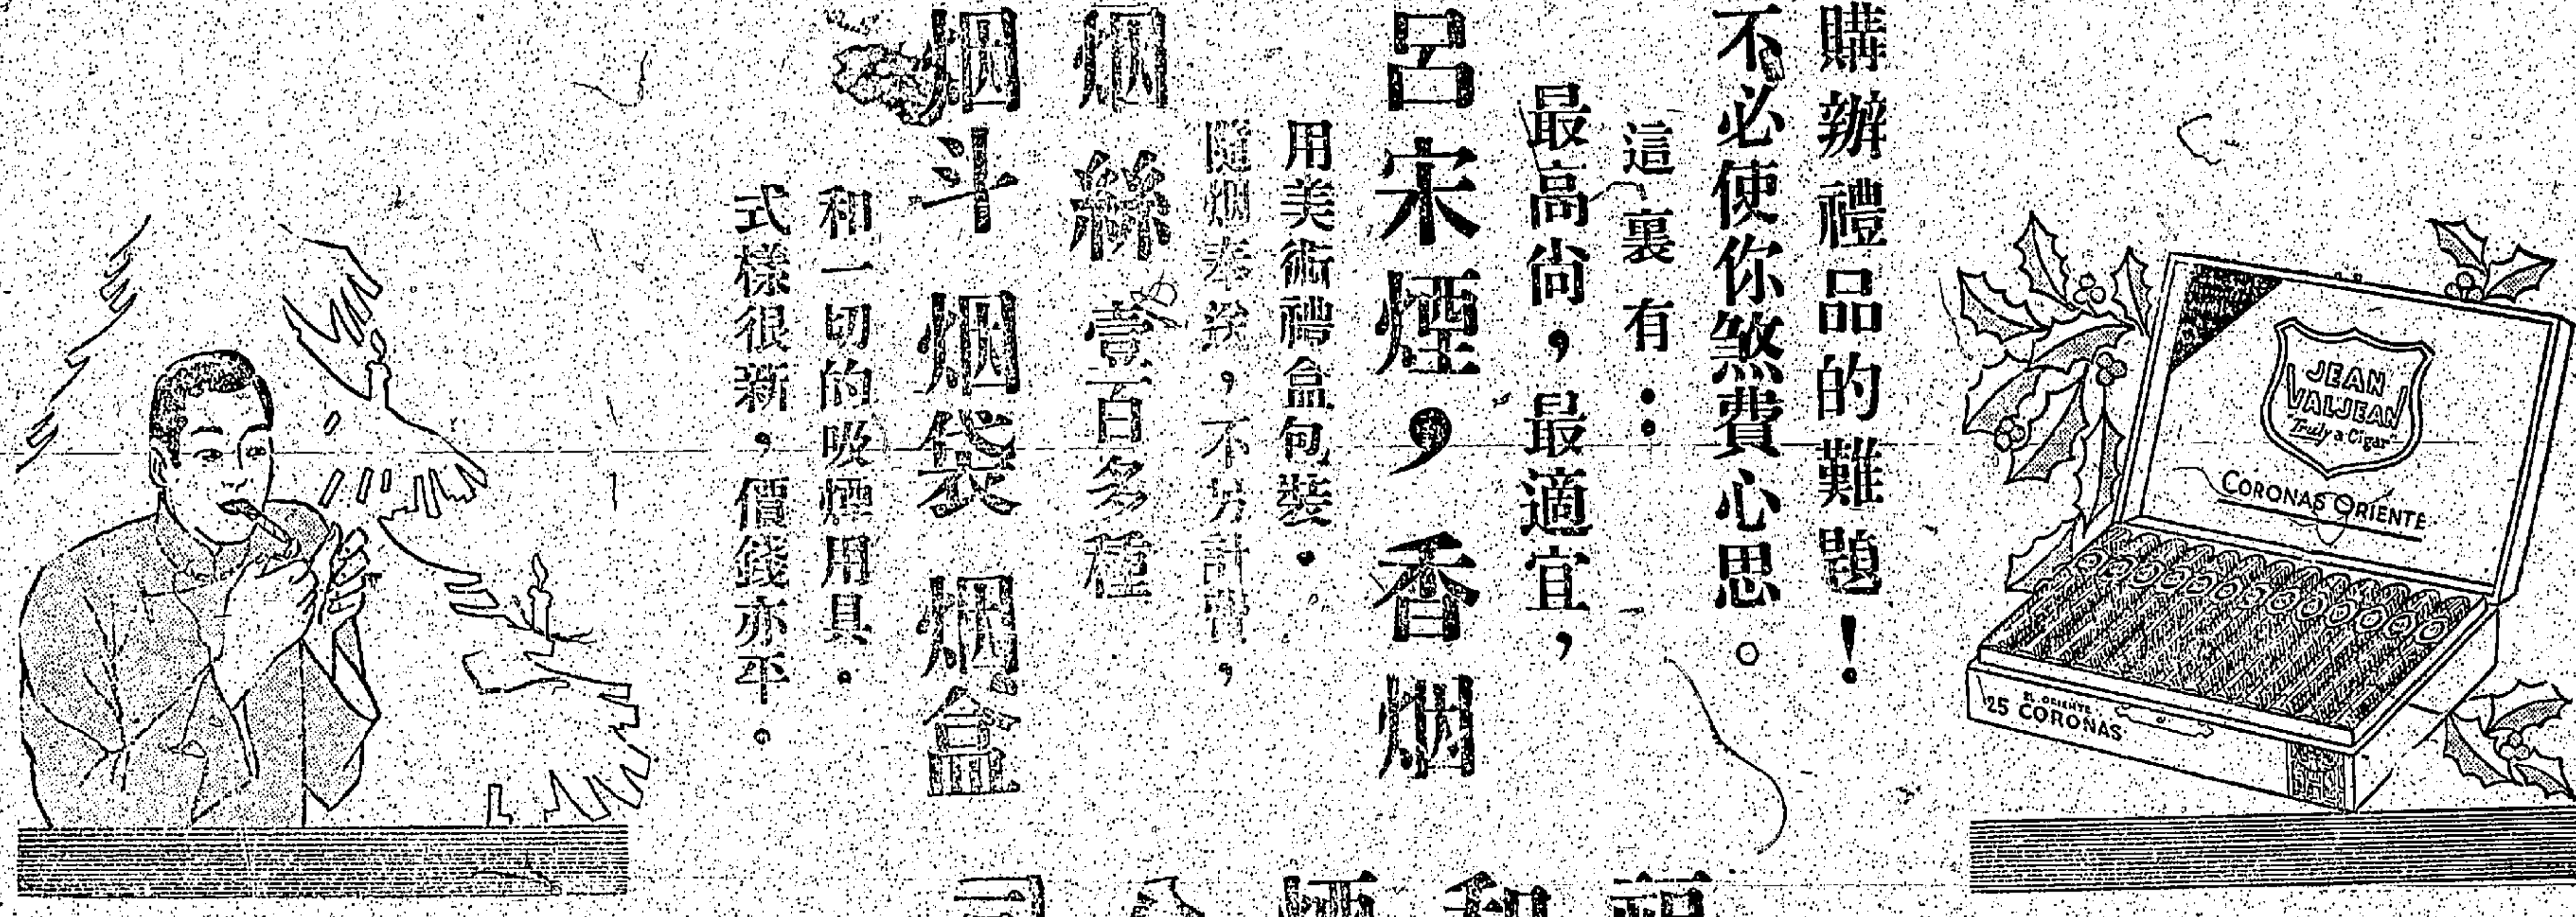 購辦禮品的難題！
不必使你煞費心思。
這裏有：
最高尚，最適宜，
呂宋煙，香烟
用美術禮盒包裝．
隨烟奉送，不另計費，
烟絲壹百多種
烟斗 烟袋 烟盒
和一切的吸煙用具．
式樣很新，價錢亦平。
JEAN
VALJEAN
Truly a Cigar
CORONAS ORIENTE
EL ORIENTE
25 CORONAS